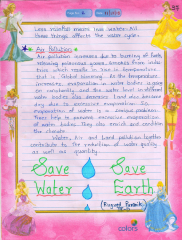 Less rainfall means less water. All
these things affects the water cycle.
* Air Pollution :
Air pollution increases due to burning of fuels,
releasing poisonous gases, smokes from indus
tries which results in rise in temperature
that is Global Warming. As the temperature
increases, evaporation in water bodies is goes
on constantly and the water level in different
water bodies also decreases. Land also became
dry due to excessive evaporation. So
evaporation of water is a serious problem.
Trees help to prevent excessive evaporation
of water bodies. They also enrich and condition
the climate.
Water, Air and Land pollution together
contribute to the
of water quality
as well as quantity.
Save Water
Save Earth
colors